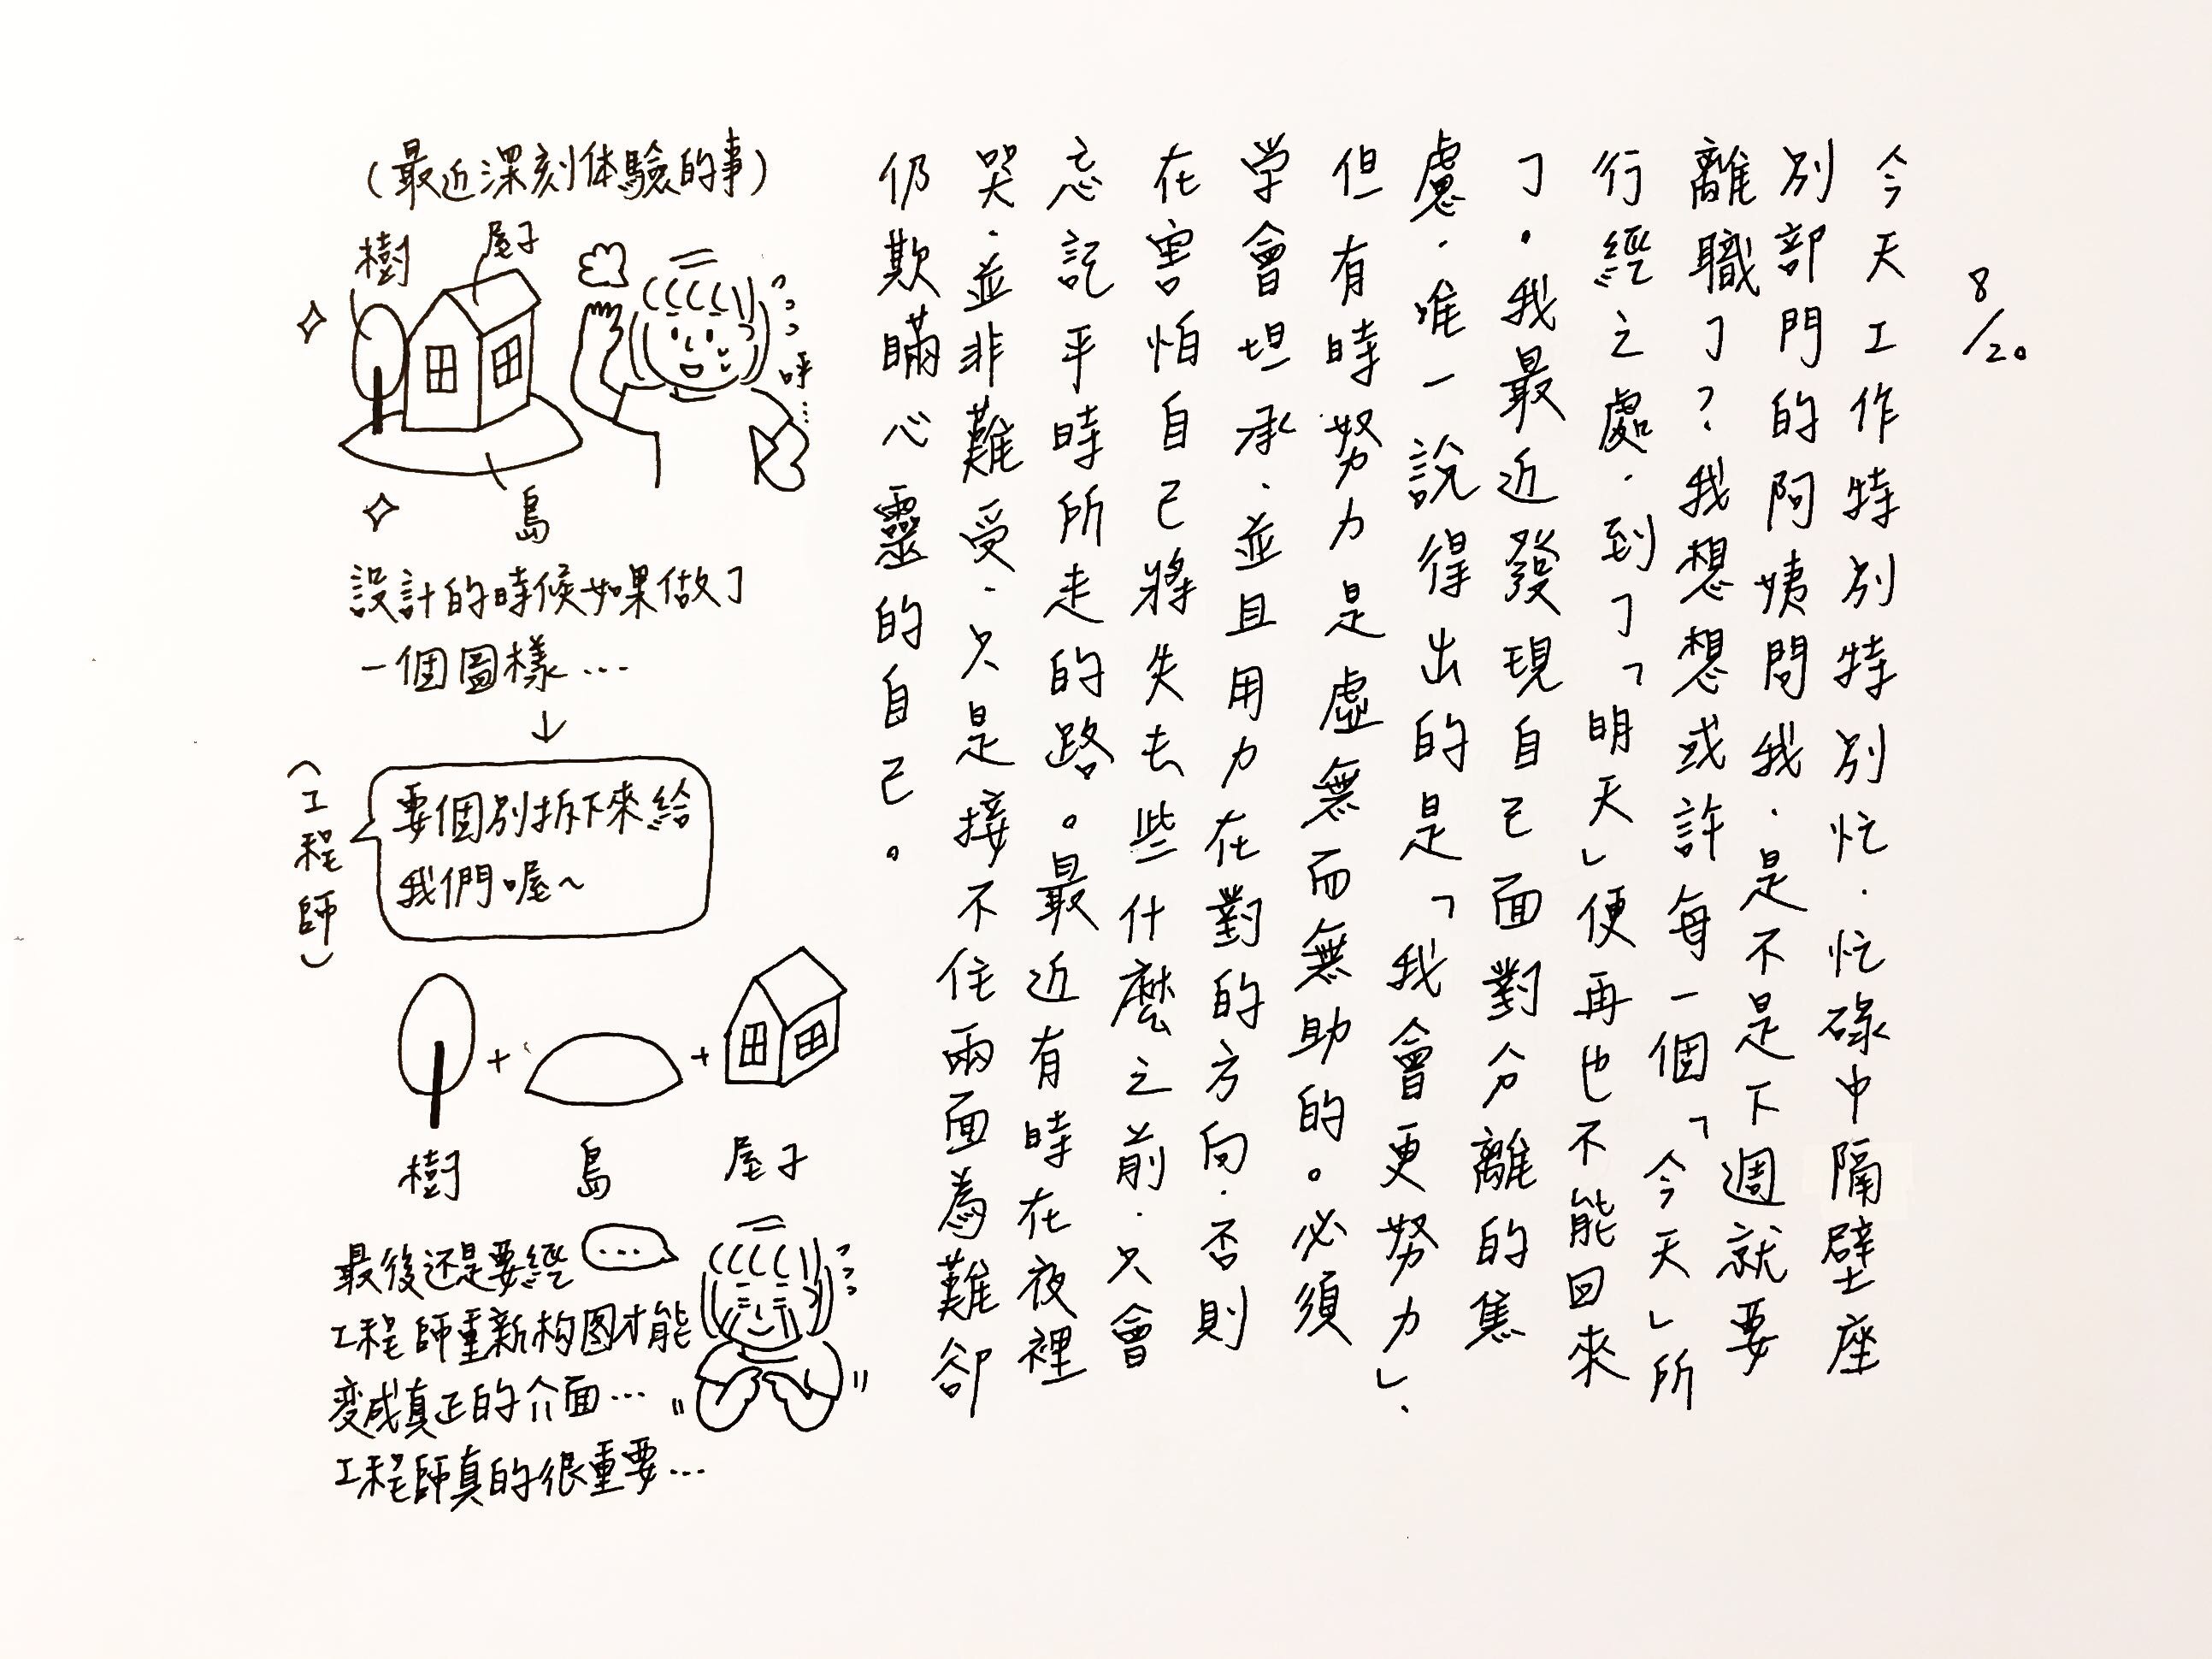 8/20
今天工作特別特別忙.忙碌中隔壁座
別部門的阿姨問我.是不是下週就要
離職了?我想想或許每一個「今天」所
行經之處.到了「明天」便再也不能回來
了。我最近發現自己面對分離的焦
慮.唯一說得出的是「我會更努力」、
但有時努力是虛無而無助的。必須
学會坦承.並且用力在對的方向.否則
在害怕自己將失去些什麼之前.只會
忘記平時所走的路。最近有時在夜裡
哭.並非難受.只是接不住兩面為難卻
仍欺瞞心靈的自己。
(最近深刻体驗的事)
樹
屋子
呼…
島
設計的時候如果做了
一個圖樣…
↓
(工程師)
要個別拆下來給
我們喔~
+
+
樹
島
屋子
…
最後还是要經
工程師重新构图才能
变成真正的介面…
工程師真的很重要…